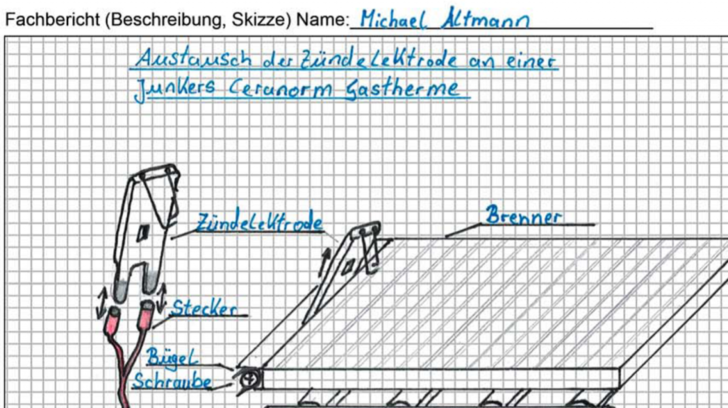 Fachbericht (Beschreibung, Skizze) Name: Michael Altmann
Austausch der Zündelektrode an einer
Junkers Ceranorm Gastherme
Zündelektrode
Brenner
Stecker
Bügel
Schraube